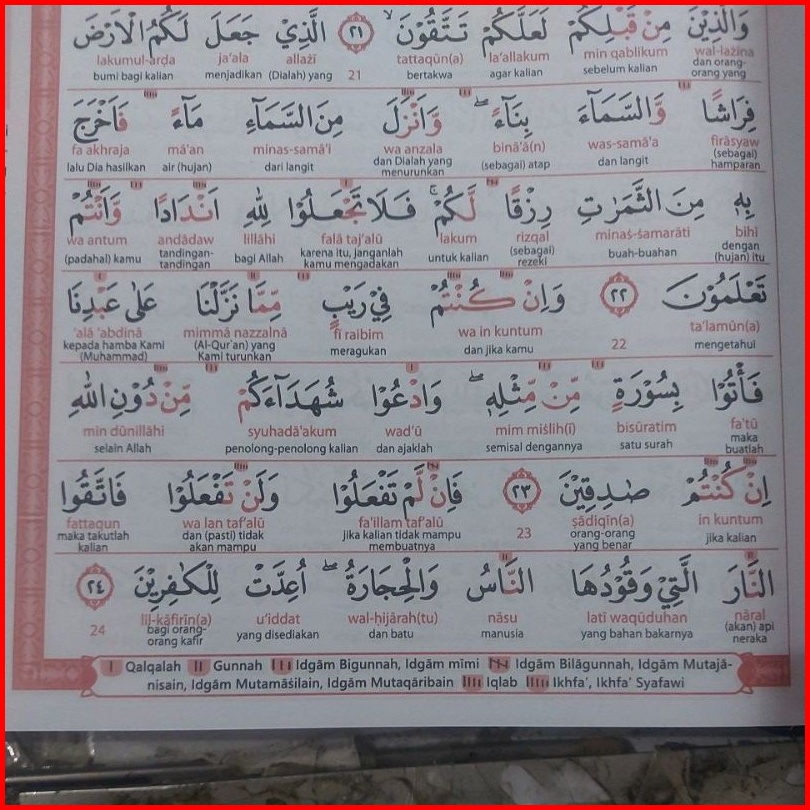 وَالَّذِيْنَ مِنْ قَبْلِكُمْ لَعَلَّكُمْ تَتَّقُوْنَۙ ٢١ الَّذِيْ جَعَلَ لَكُمُ الْاَرْضَ
wal-lażīna min qablikum la'allakum tattaqūn(a) allażī ja'ala lakumul-arḍa
dan orang-orang yang sebelum kalian agar kalian bertakwa 21 (Dialah) yang menjadikan bumi bagi kalian
فِرَاشًا وَّالسَّمَاۤءَ بِنَاۤءًۖ وَّاَنْزَلَ مِنَ السَّمَاۤءِ مَاۤءً فَاَخْرَجَ
firāsyaw was-samā'a binā'ā(n) wa anzala minas-samā'i mā'an fa akhraja
(sebagai) hamparan dan langit (sebagai) atap dan Dialah yang menurunkan dari langit air (hujan) lalu Dia hasilkan
بِهٖ مِنَ الثَّمَرٰتِ رِزْقًا لَّكُمْۚ فَلَا تَجْعَلُوْا لِلّٰهِ اَنْدَادًا وَّاَنْتُمْ
bihī minaṡ-ṡamarāti rizqal lakum falā taj'alū lillāhi andādaw wa antum
dengan (hujan) itu buah-buahan (sebagai) rezeki untuk kalian karena itu, janganlah kamu mengadakan bagi Allah tandingan-tandingan (padahal) kamu
تَعْلَمُوْنَ ٢٢ وَاِنْ كُنْتُمْ فِيْ رَيْبٍ مِّمَّا نَزَّلْنَا عَلٰى عَبْدِنَا
ta'lamūn(a) wa in kuntum fī raibim mimmā nazzalnā 'alā 'abdinā
mengetahui 22 dan jika kamu meragukan (Al-Qur'an) yang Kami turunkan kepada hamba Kami (Muhammad)
فَأْتُوْا بِسُوْرَةٍ مِّنْ مِّثْلِهٖۖ وَادْعُوْا شُهَدَاۤءَكُمْ مِّنْ دُوْنِ اللّٰهِ
fa'tū bisūratim mim miṡlih(ī) wad'ū syuhadā'akum min dūnillāhi
maka buatlah satu surah semisal dengannya dan ajaklah penolong-penolong kalian selain Allah
اِنْ كُنْتُمْ صٰدِقِيْنَ ٢٣ فَاِنْ لَّمْ تَفْعَلُوْا وَلَنْ تَفْعَلُوْا فَاتَّقُوا
in kuntum ṣādiqīn(a) fa'illam taf'alū wa lan taf'alū fattaqun
jika kalian orang-orang yang benar 23 jika kalian tidak mampu membuatnya dan (pasti) tidak akan mampu maka takutlah kalian
النَّارَ الَّتِيْ وَقُوْدُهَا النَّاسُ وَالْحِجَارَةُۖ اُعِدَّتْ لِلْكٰفِرِيْنَ ٢٤
nāral latī waqūduhan nāsu wal-ḥijārah(tu) u'iddat lil-kāfirīn(a)
(akan) api neraka yang bahan bakarnya manusia dan batu yang disediakan bagi orang-orang kafir 24
I Qalqalah II Gunnah III Idgām Bigunnah, Idgām mīmi Idgām Bilāgunnah, Idgām Mutajā-
nisain, Idgām Mutamāṡilain, Idgām Mutaqāribain Iqlab Ikhfa', Ikhfa' Syafawi